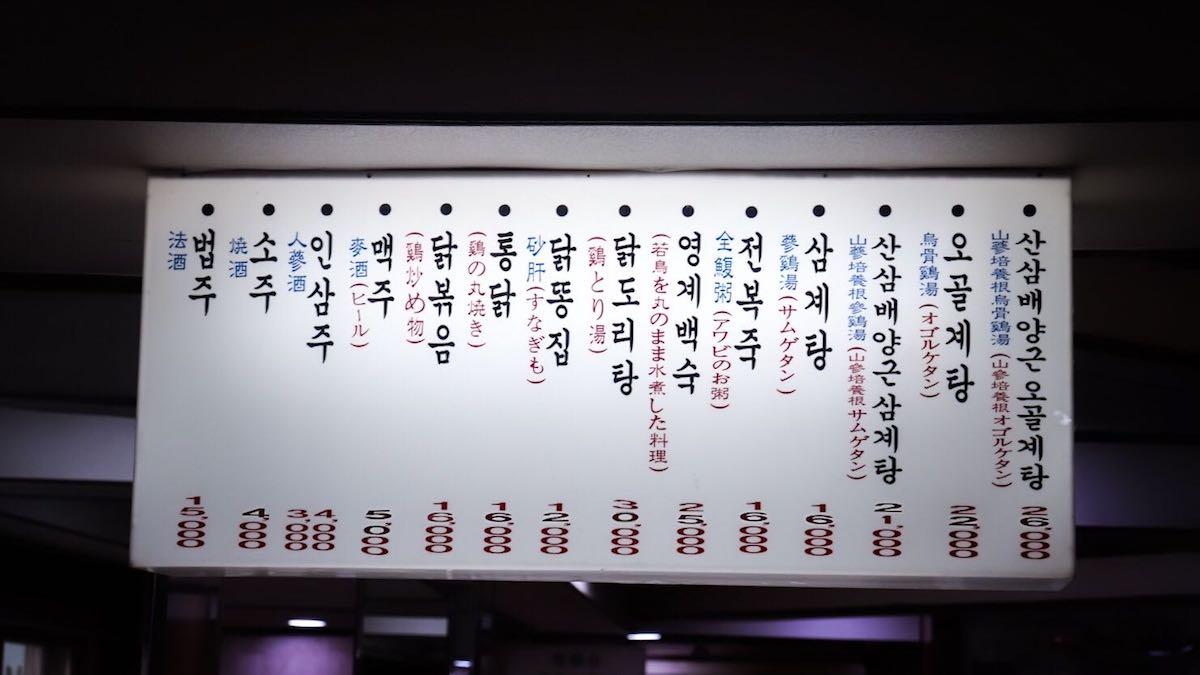 산삼배양근오골계탕
山蔘培養根烏骨鷄湯(山參培養根オゴルケタン)
26,000
오골계탕
烏骨鷄湯(オゴルケタン)
22,000
산삼배양근삼계탕
山蔘培養根參鷄湯(山參培養根サムゲタン)
21,000
삼계탕
蔘鷄湯(サムゲタン)
16,000
전복죽
全鰒粥(アワビのお粥)
16,000
영계백숙
(若鳥を丸のまま水煮した料理)
25,000
닭도리탕
(鷄とり湯)
30,000
닭똥집
砂肝(すなぎも)
12,000
통닭
(鷄の丸焼き)
16,000
닭볶음
(鷄炒め物)
16,000
맥주
麥酒(ビール)
5,000
인삼주
人蔘酒
4,000
3,000
소주
燒酒
4,000
법주
法酒
15,000